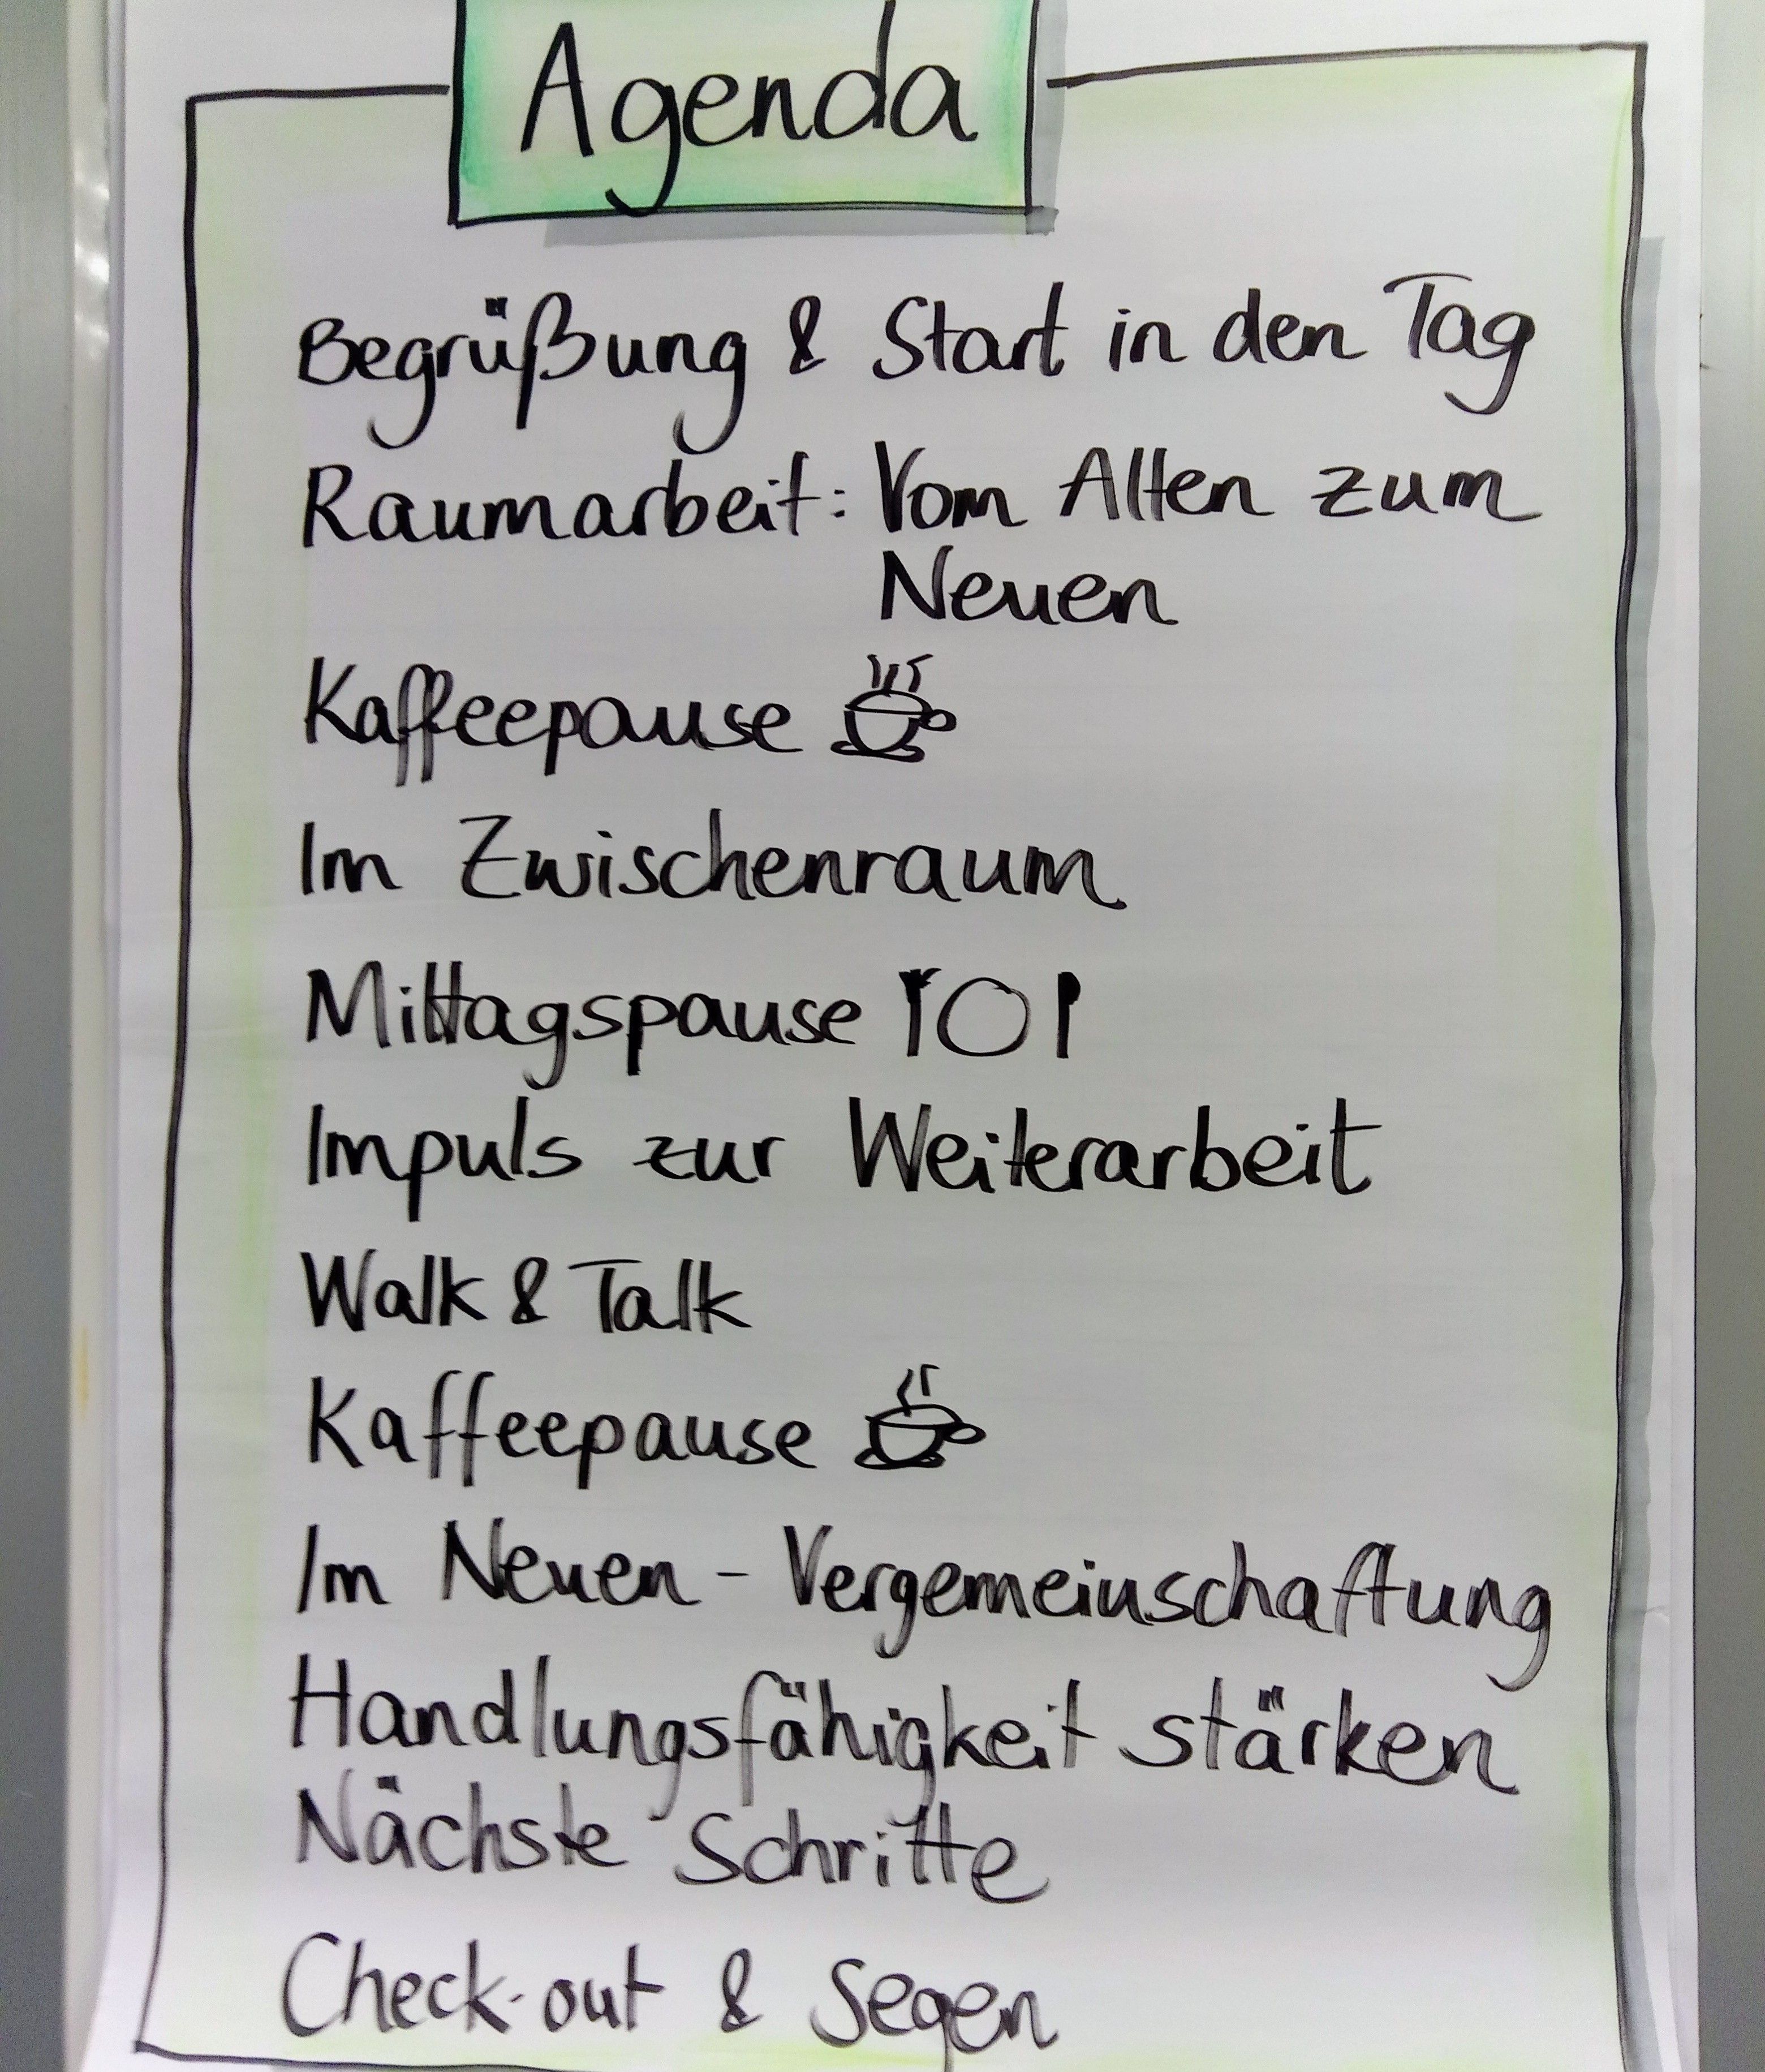 Agenda
Begrüßung & Start in den Tag
Raumarbeit: Vom Alten zum
Neuen
Kaffeepause
Im Zwischenraum
Mittagspause
Impuls zur Weiterarbeit
Walk & Talk
Kaffeepause
Im Neuen - Vergemeinschaftung
Handlungsfähigkeit stärken
Nächste Schritte
Check-out & Segen